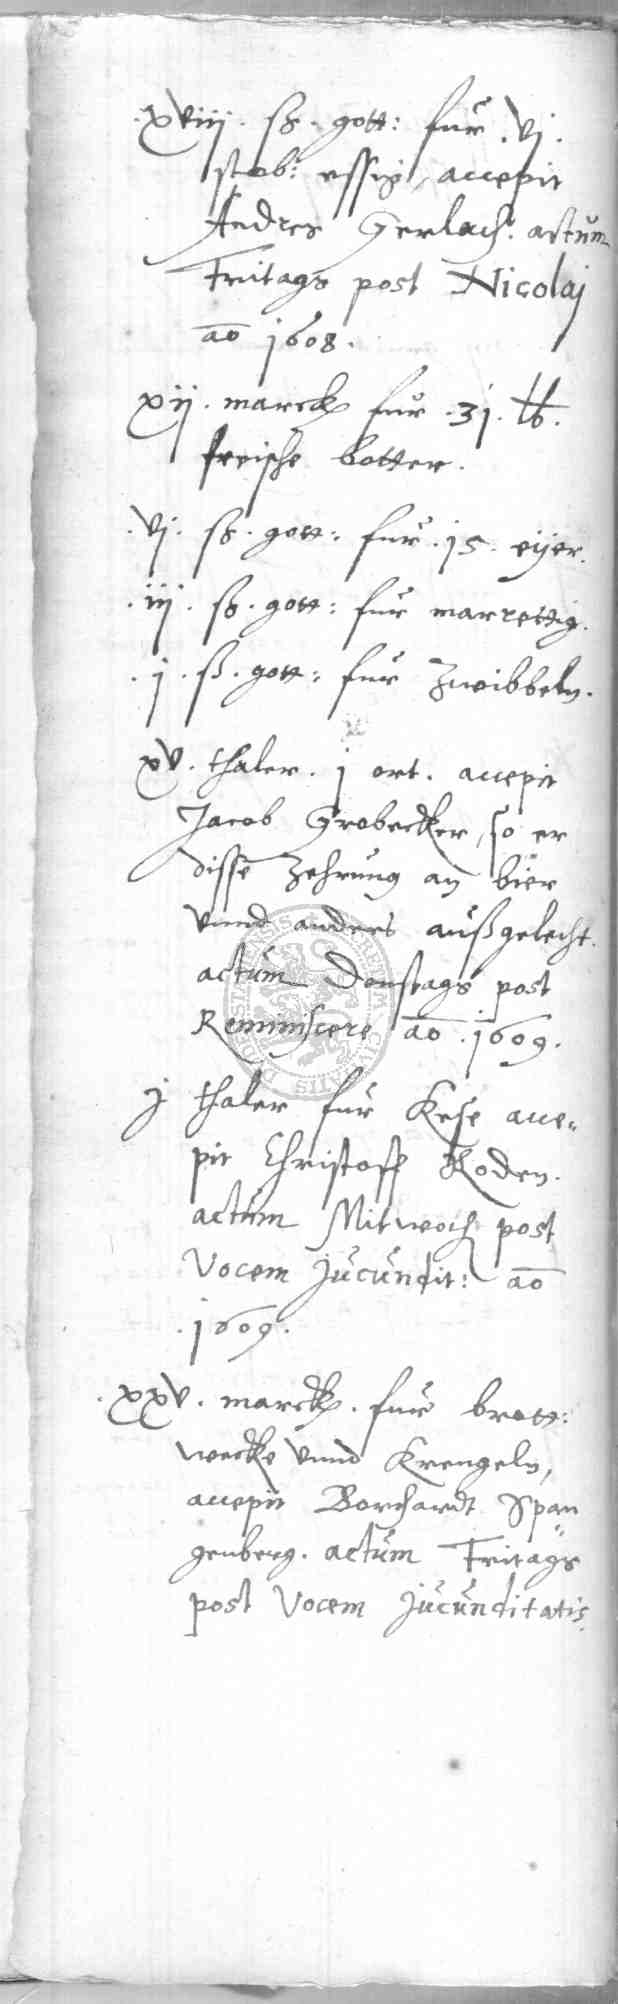 .xviij. ß. gott: für .vj.
stob: essig, accepit
Andres Gerlach. actum
Fritags post Nicolaj
ao 1608.
xij. marck für .31. lb.
freische botter.
.vj. ß. gott: für .15. eijer.
.iij. ß. gott: für marrettig.
.j. ß. gott: für Zwibbeln.
xv. thaler. j ort. accepit
Jacob Grobecker, so er
disse Zehrung an bier
vnnd anders außgelecht.
actum Donstags post
Reminiscere ao .1609.
j thaler für Kese acce„
pit Christoff Roden.
actum Mitwoch post
Vocem jucundit: ao
.1609.
.xxv. marck. für brott:
wecke vnnd Krengeln,
accepit Borchardt Span„
genberg. actum Fritags
post Vocem jucunditatis.